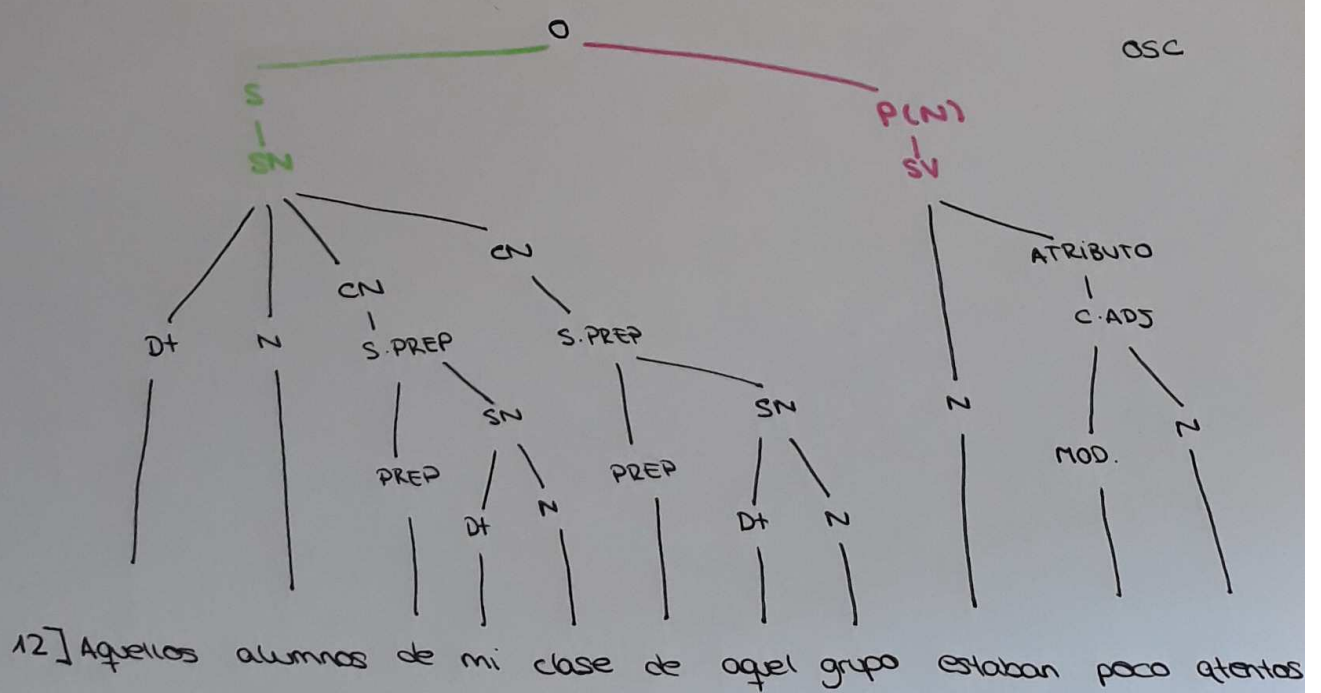 O
OSC
S
P(N)
SN
SV
CN
ATRIBUTO
CN
C.ADJ
Dt N S.PREP S.PREP
SN SN N
N
PREP PREP MOD.
Dt N Dt N
12] Aquellos alumnos de mi clase de aquel grupo estaban poco atentos